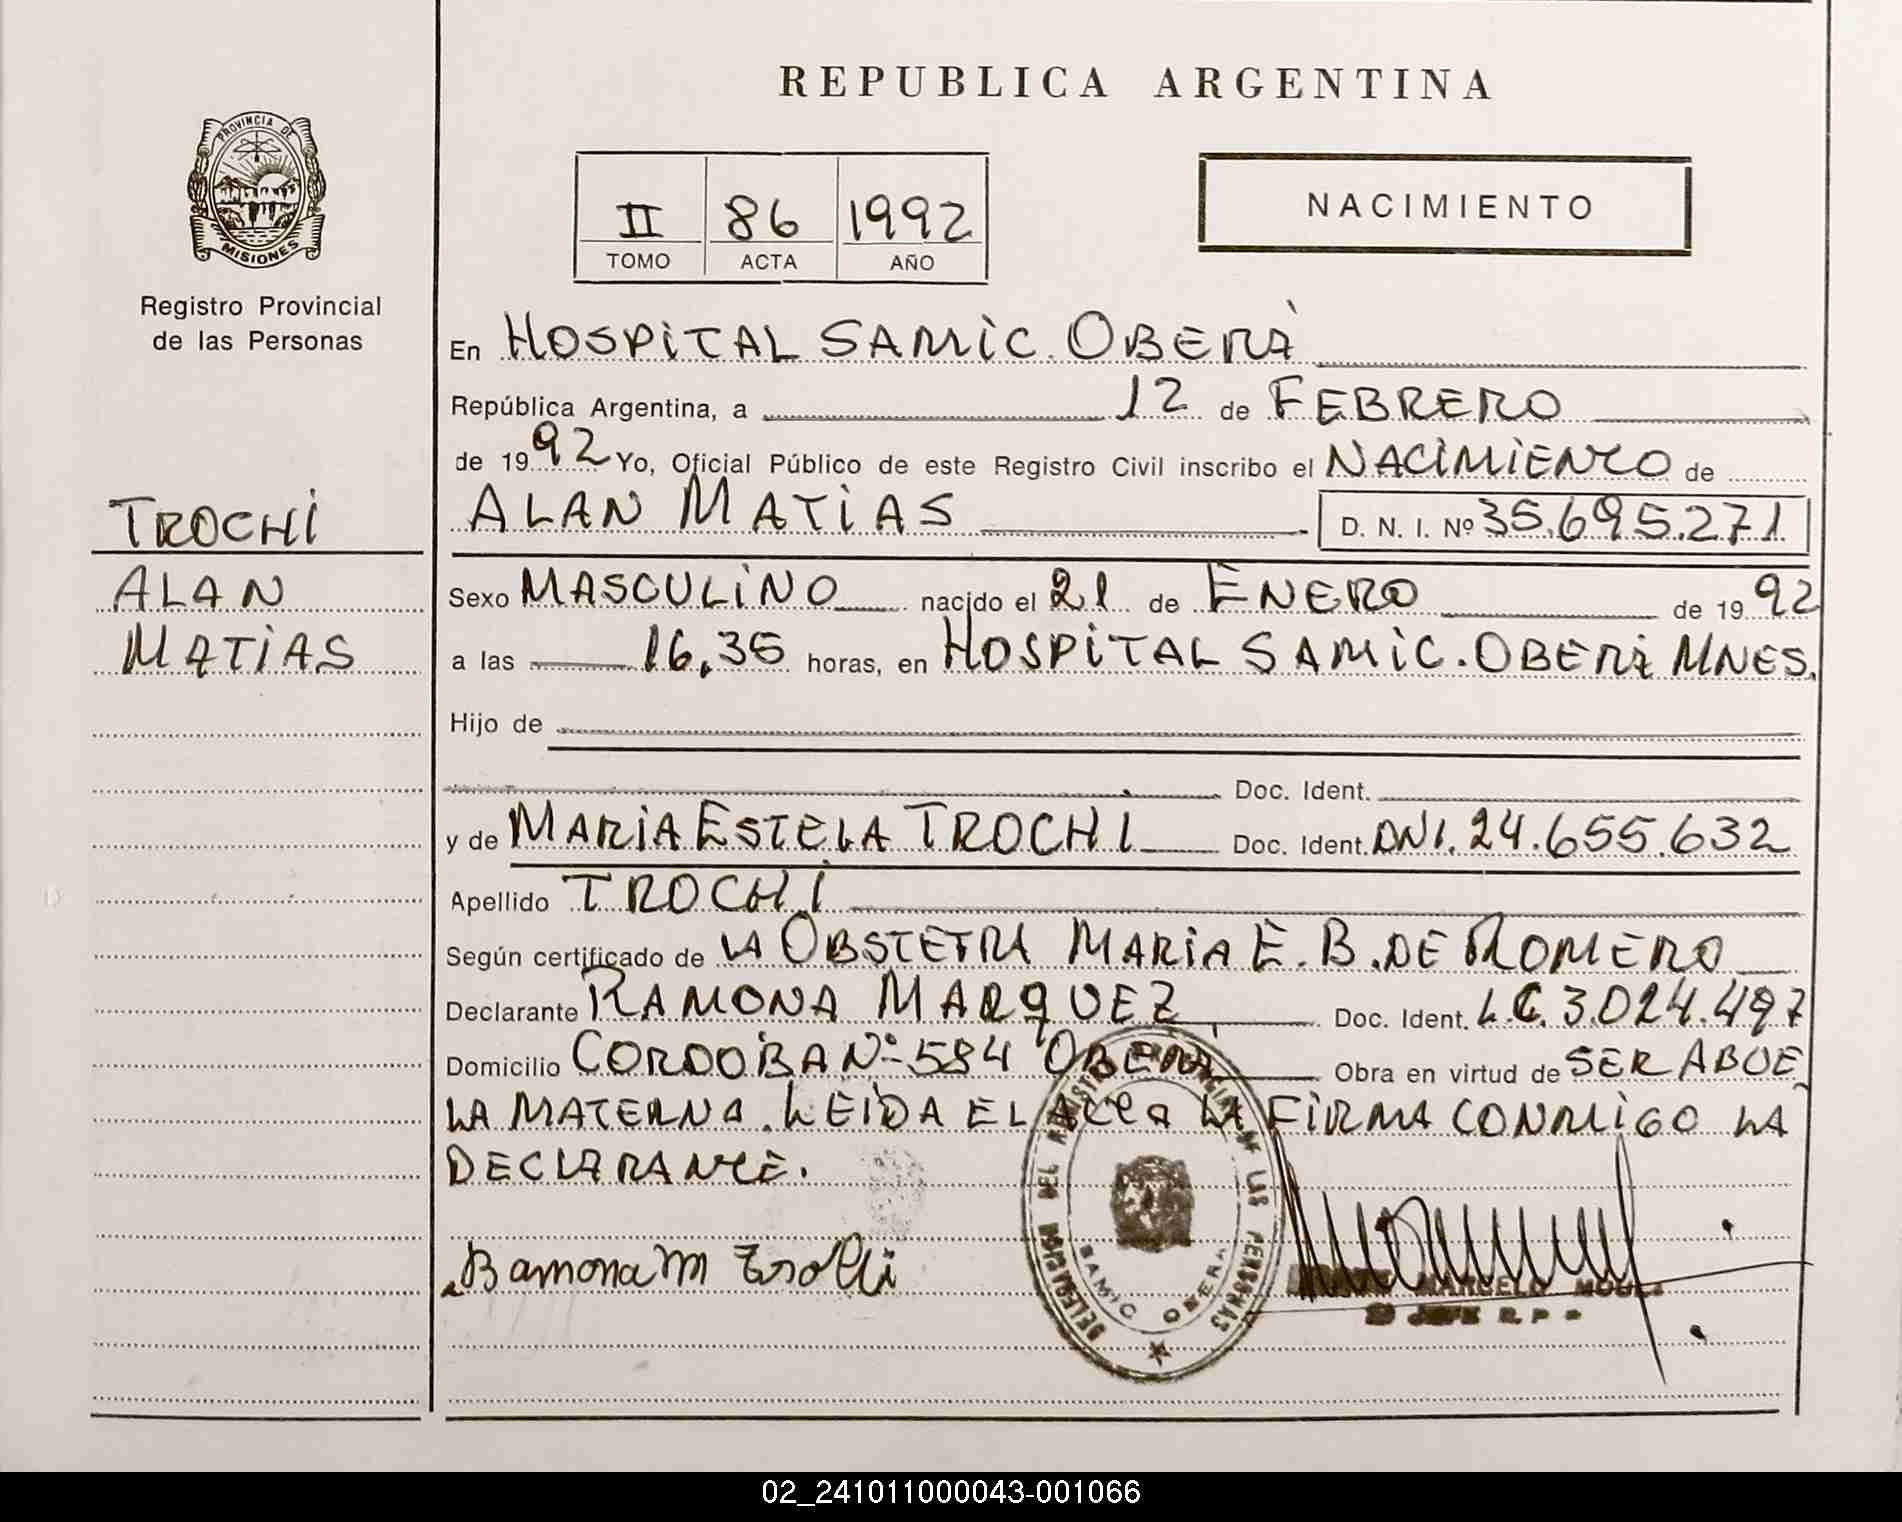 REPUBLICA ARGENTINA
PROVINCIA DE
MISIONES
Registro Provincial
de las Personas
II 86 1992
TOMO ACTA AÑO
NACIMIENTO
En HOSPITAL SAMIC. OBERÁ
República Argentina, a 12 de FEBRERO
de 1992 Yo, Oficial Público de este Registro Civil inscribo el NACIMIENTO de
ALAN MATIAS D. N. I. Nº 35.695.271
TROCHI
ALAN
MATIAS
Sexo MASCULINO nacido el 21 de ENERO de 1992
a las 16,35 horas, en HOSPITAL SAMIC. OBERÁ MNES.
Hijo de
Doc. Ident.
y de MARIA ESTELA TROCHI Doc. Ident. DNI. 24.655.632
Apellido TROCHI
Según certificado de LA OBSTETRA MARIA E. B. DE ROMERO
Declarante RAMONA MARQUEZ Doc. Ident. L.C. 3.024.497
Domicilio CORDOBA Nº 584 OBERA Obra en virtud de SER ABUE
LA MATERNA. LEIDA EL ACTA LA FIRMA CONMIGO LA
DECLARANTE.
Ramona M
DELEGACION DEL REGISTRO PROVINCIAL DE LAS PERSONAS
SAMIC OBERA
MARCELO
JEFE R. P.
02_241011000043-001066